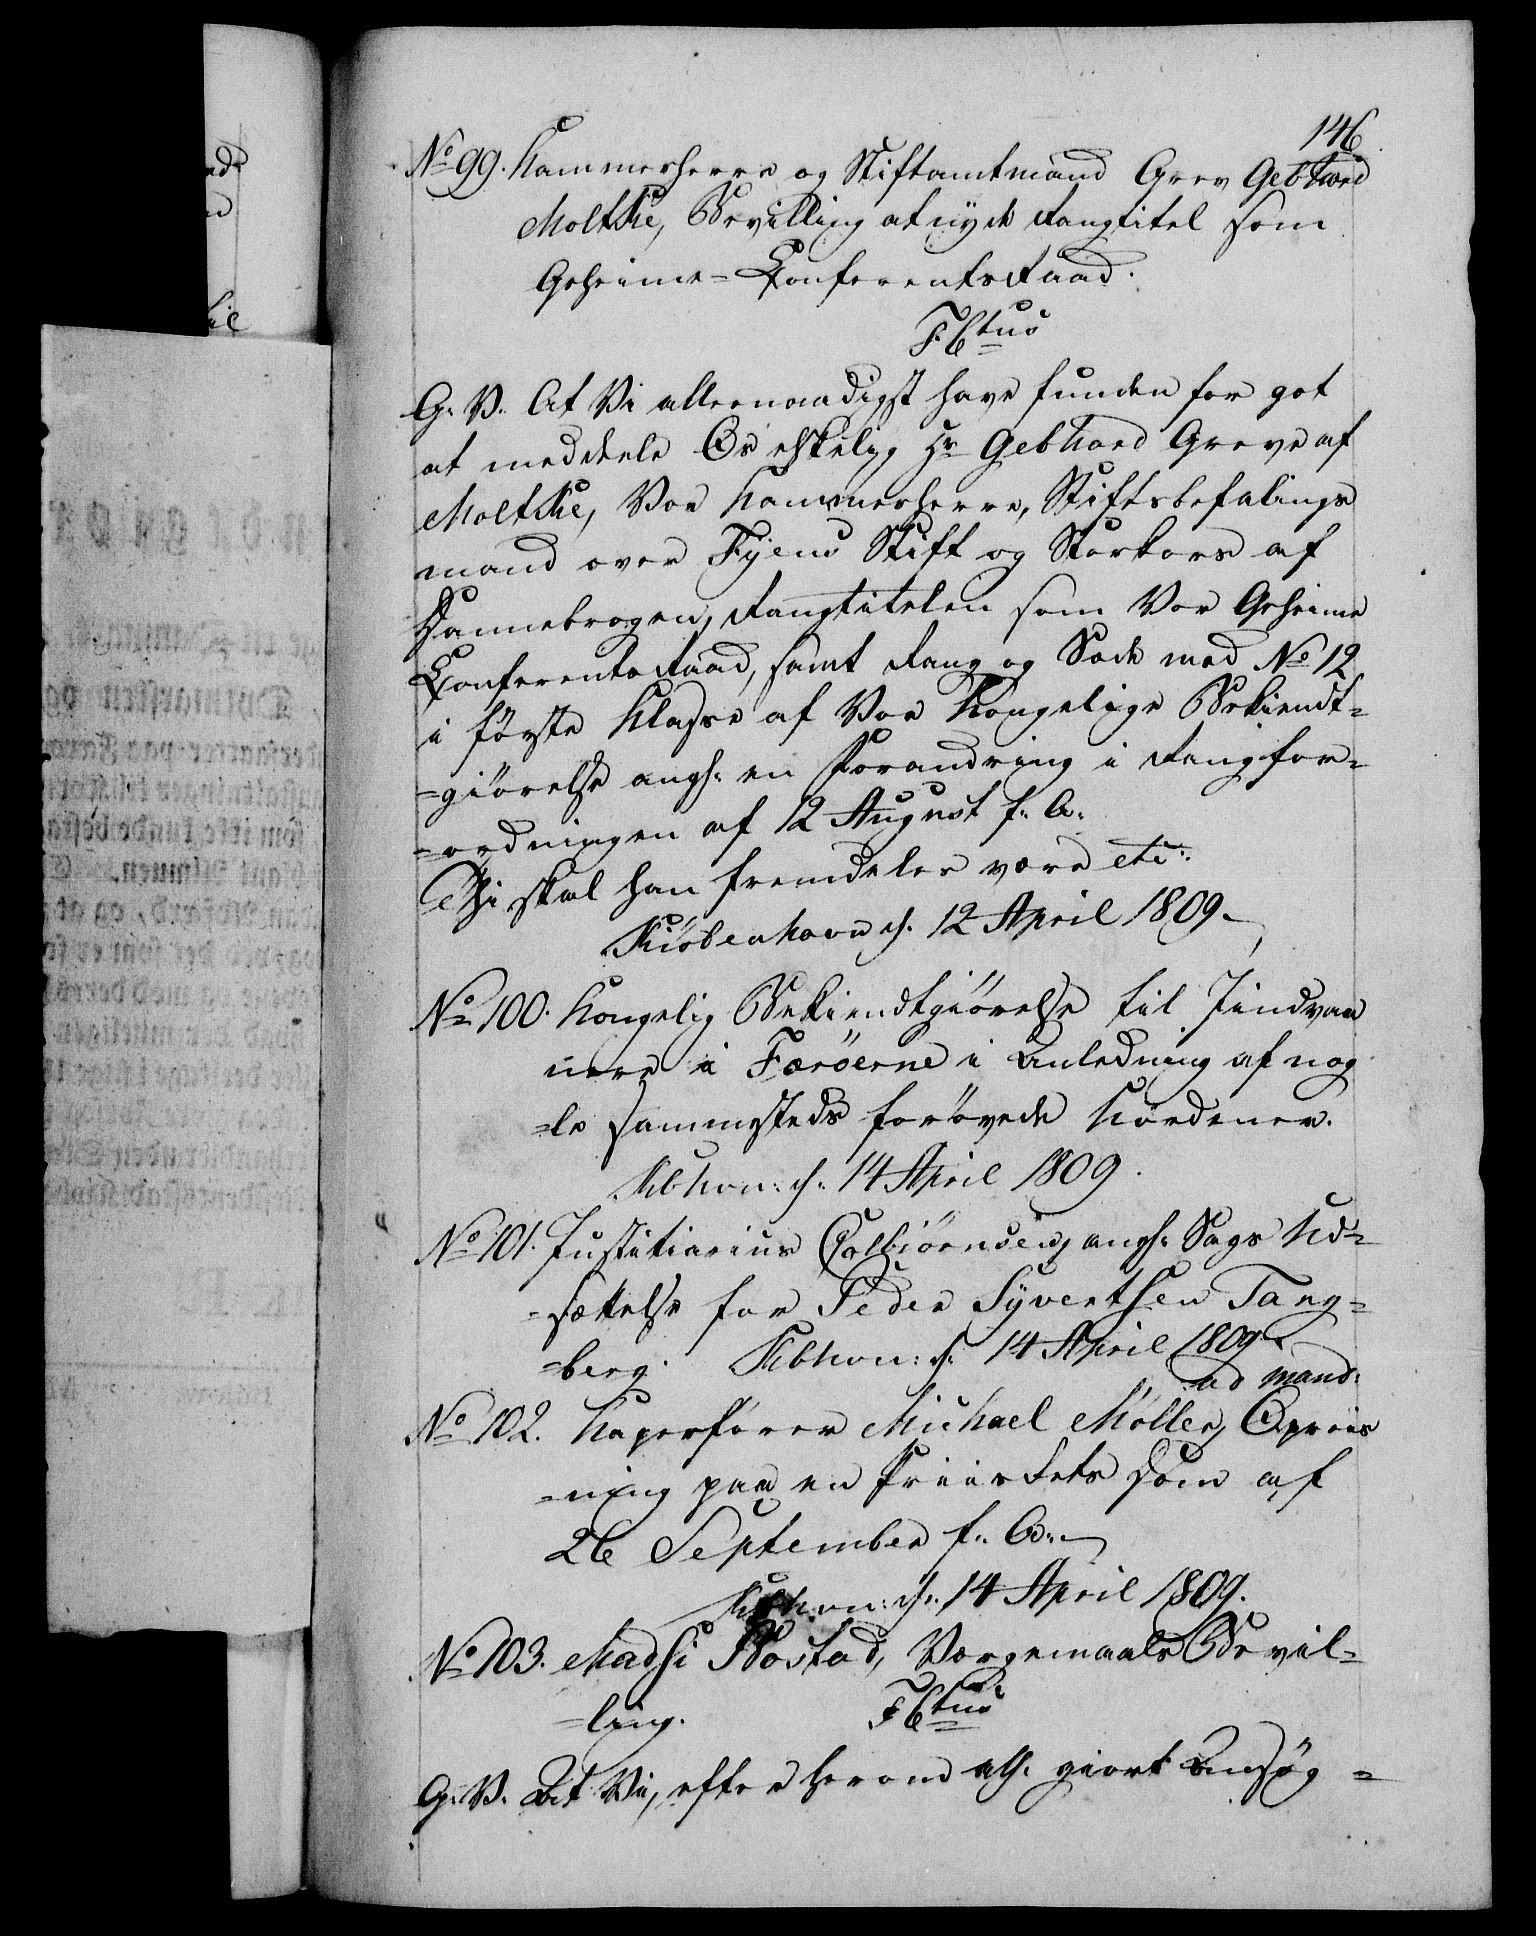 146
No 99. Kammerherre og Stiftamtmand Grev Gebhard
Moltke, Bevilling at nyde Rangtitel som
Geheime-Conferentsraad.
F. C. tius
G. V. At Vi allernaadigst have funden for got
at meddele Os elskelig Hr Gebhard Greve af
Moltke, Vor Kammerherre, Stiftsbefalings
mand over Fyens Stift og Storkors af
Dannebrogen, Rangtitelen som Vor Geheime
Conferentsraad, samt Rang og Sæde med No 12
i förste Klasse af Vor Kongelige Bekiendt-
-giörelse angl. en Forandring i Rangfor-
-ordningen af 12 August f. A.
Thi skal han fremdeles være etc:
Kiöbenhavn d. 12 April 1809.
No 100. Kongelig Bekiendtgiörelse til Indvaa
nere i Færöerne i Anledning af nog
-le sammesteds forövede Uordener.
Kbhvn: d. 14 April 1809.
No 101. Justitiarius Colbiörnsen, angl. Sags Ud-
-sættelse for Peder Syvertsen Tang-
-berg. Kbhvn: d. 14 April 1809.
ad mand:
No 102. Kaperförer Michael Möller, Opreis
-ning paa en Priisrets Dom af
26 September f. A.
Kbhvn: d. 14 April 1809.
No 103. Madsi Rostad, Værgemaals Bevil-
-ling.
F. C. tius
G. V. At Vi, efter herom all. giort Ansög-